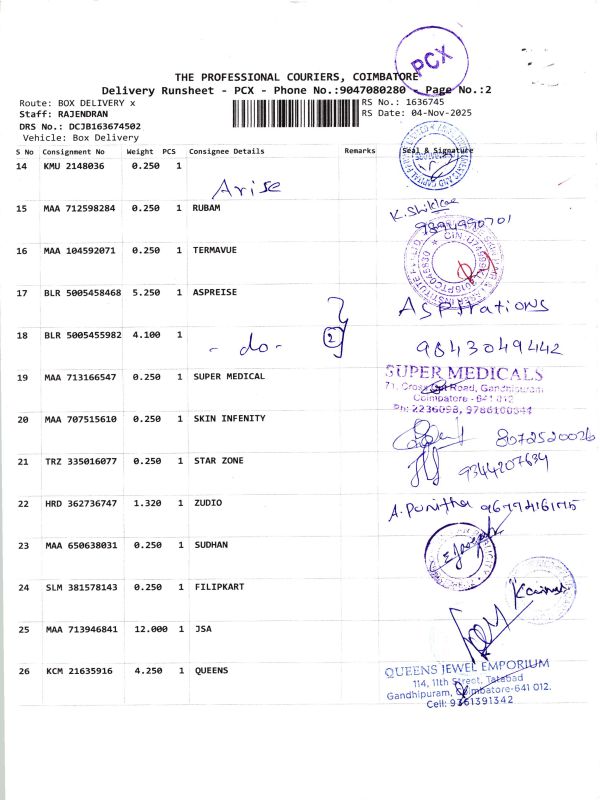 PCX
THE PROFESSIONAL COURIERS, COIMBATORE
Delivery Runsheet - PCX - Phone No.:9047080280 - Page No.:2
Route: BOX DELIVERY x
RS No.: 1636745
Staff: RAJENDRAN
RS Date: 04-Nov-2025
DRS No.: DCJB163674502
Vehicle: Box Delivery
S No Consignment No Weight PCS Consignee Details Remarks Seal & Signature
14 KMU 2148036 0.250 1 Arise
15 MAA 712598284 0.250 1 RUBAM
9894990701
16 MAA 104592071 0.250 1 TERMAVUE
17 BLR 5005458468 5.250 1 ASPREISE Aspirations
18 BLR 5005455982 4.100 1 - do - 2 9843049442
19 MAA 713166547 0.250 1 SUPER MEDICAL SUPER MEDICALS
71, Cross Cut Road, Gandhipuram
Coimbatore - 641 012
Ph: 2236098, 9786100844
20 MAA 707515610 0.250 1 SKIN INFENITY 8072520026
21 TRZ 335016077 0.250 1 STAR ZONE 9344207634
22 HRD 362736747 1.320 1 ZUDIO A. Punitha
23 MAA 650638031 0.250 1 SUDHAN
24 SLM 381578143 0.250 1 FILIPKART
25 MAA 713946841 12.000 1 JSA
26 KCM 21635916 4.250 1 QUEENS QUEENS JEWEL EMPORIUM
114, 11th Street, Tatabad
Gandhipuram, Coimbatore-641 012.
Cell: 9361391342